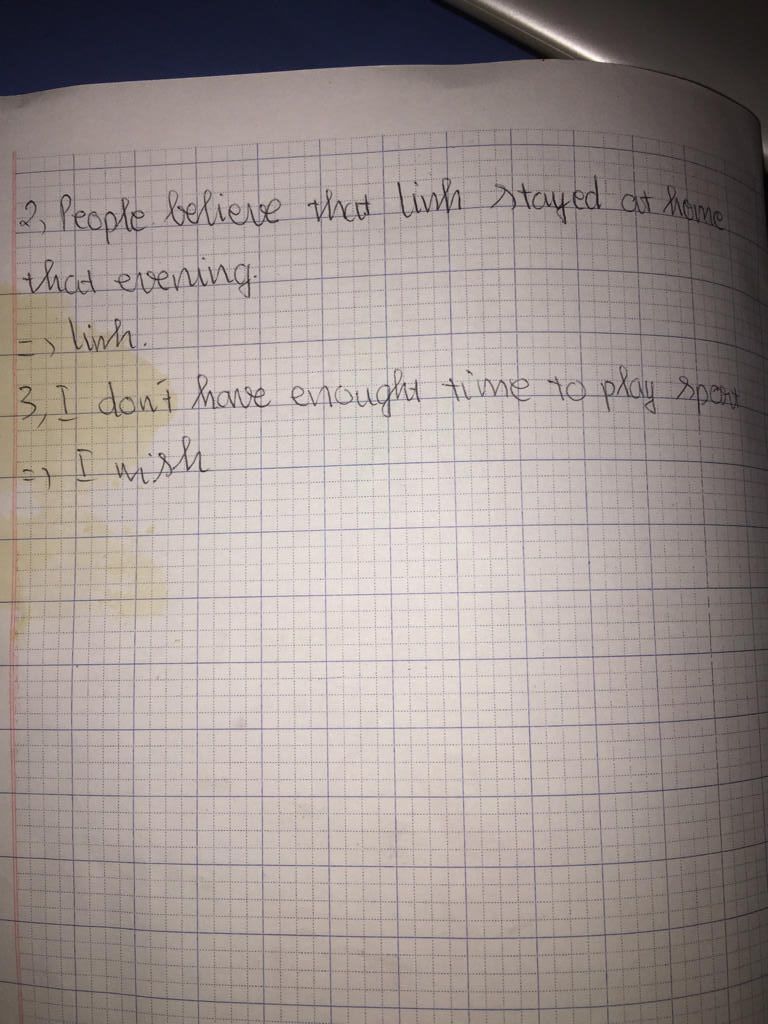 2, People believe that linh stayed at home
that evening.
=> linh.
3, I don't have enought time to play sport
=> I wish